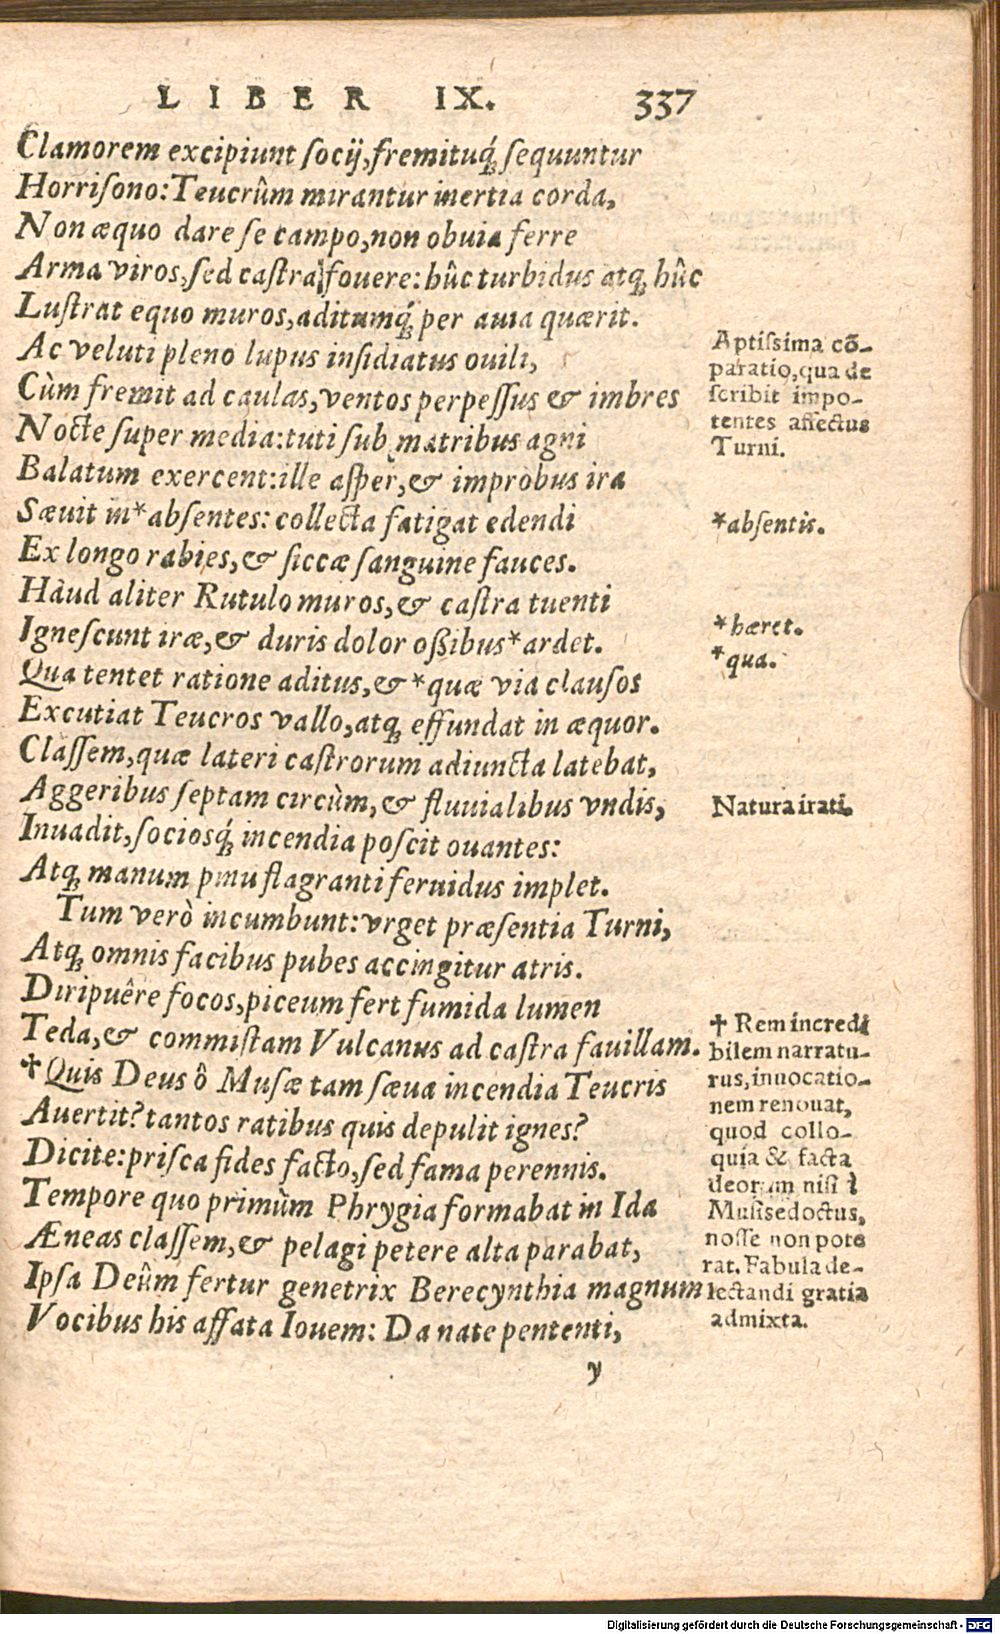 LIBER IX. 337
Clamorem excipiunt socij, fremituq́; sequuntur
Horrisono: Teucrûm mirantur inertia corda,
Non æquo dare se campo, non obuia ferre
Arma viros, sed castra fouere: hûc turbidus atq; hûc
Lustrat equo muros, aditumq́; per auia quærit.
Ac veluti pleno lupus insidiatus ouili,
Cùm fremit ad caulas, ventos perpessus & imbres
Nocte super media: tuti sub matribus agni
Balatum exercent: ille asper, & improbus ira
Sæuit in *absentes: collecta fatigat edendi
Ex longo rabies, & siccæ sanguine fauces.
Hàud aliter Rutulo muros, & castra tuenti
Ignescunt iræ, & duris dolor oßibus *ardet.
Qua tentet ratione aditus, & *quæ via clausos
Excutiat Teucros vallo, atq; effundat in æquor.
Classem, quæ lateri castrorum adiuncta latebat,
Aggeribus septam circùm, & fluuialibus vndis,
Inuadit, sociosq́; incendia poscit ouantes:
Atq; manum pinu flagranti feruidus implet.
Tum verò incumbunt: vrget præsentia Turni,
Atq; omnis facibus pubes accingitur atris.
Diripuêre focos, piceum fert fumida lumen
Teda, & commistam Vulcanus ad castra fauillam.
† Quis Deus ô Musæ tam sæua incendia Teucris
Auertit? tantos ratibus quis depulit ignes?
Dicite: prisca fides facto, sed fama perennis.
Tempore quo primùm Phrygia formabat in Ida
Æneas classem, & pelagi petere alta parabat,
Ipsa Deûm fertur genetrix Berecynthia magnum
Vocibus his affata Iouem: Da nate pententi,
y
Aptissima cō-
paratio, qua de
scribit impo-
tentes affectus
Turni.
*absentis.
*hæret.
*qua.
Natura irati.
† Rem incredi
bilem narratu-
rus, inuocatio-
nem renouat,
quod collo-
quia & facta
deorum nisi à
Musis edoctus,
nosse non pote
rat. Fabula de-
lectandi gratia
admixta.
Digitalisierung gefördert durch die Deutsche Forschungsgemeinschaft - DFG